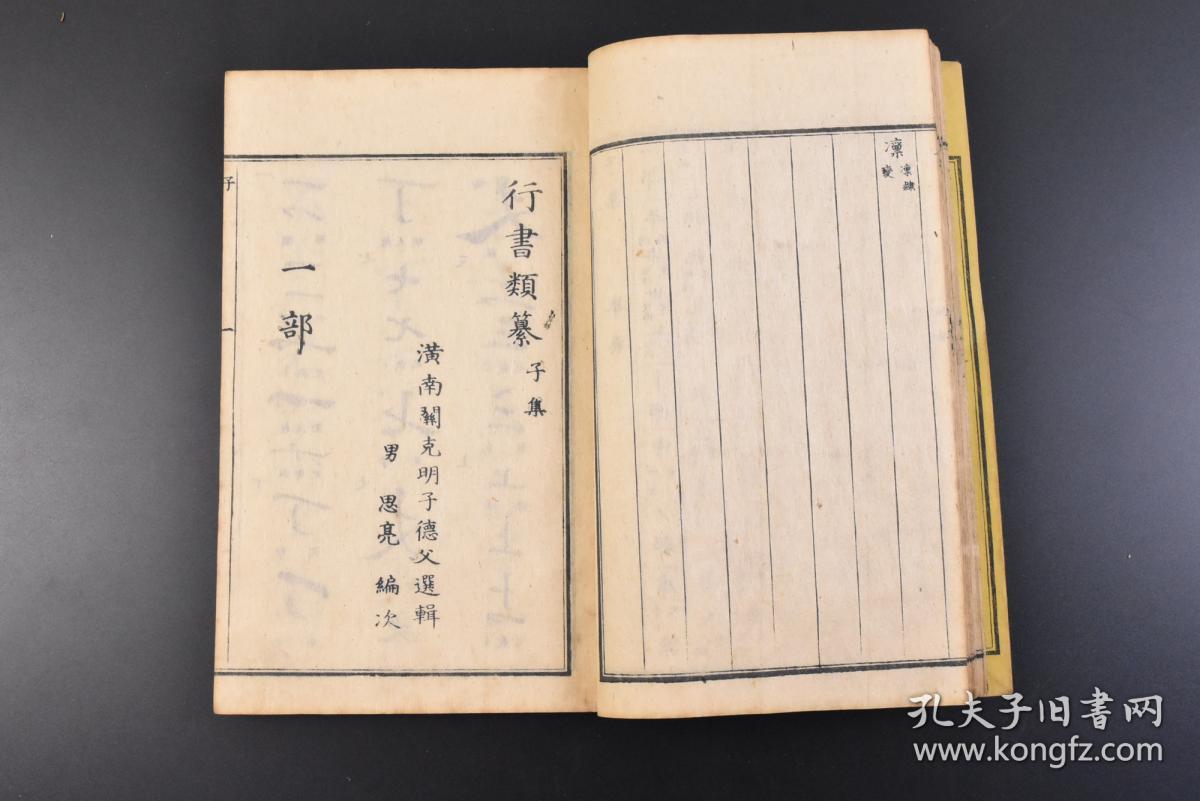 凛 凜隸變
行書類纂 子集
潢南關克明子德父選輯
男 思亮 編次
一部
子
一
孔夫子旧書网
www.kongfz.com